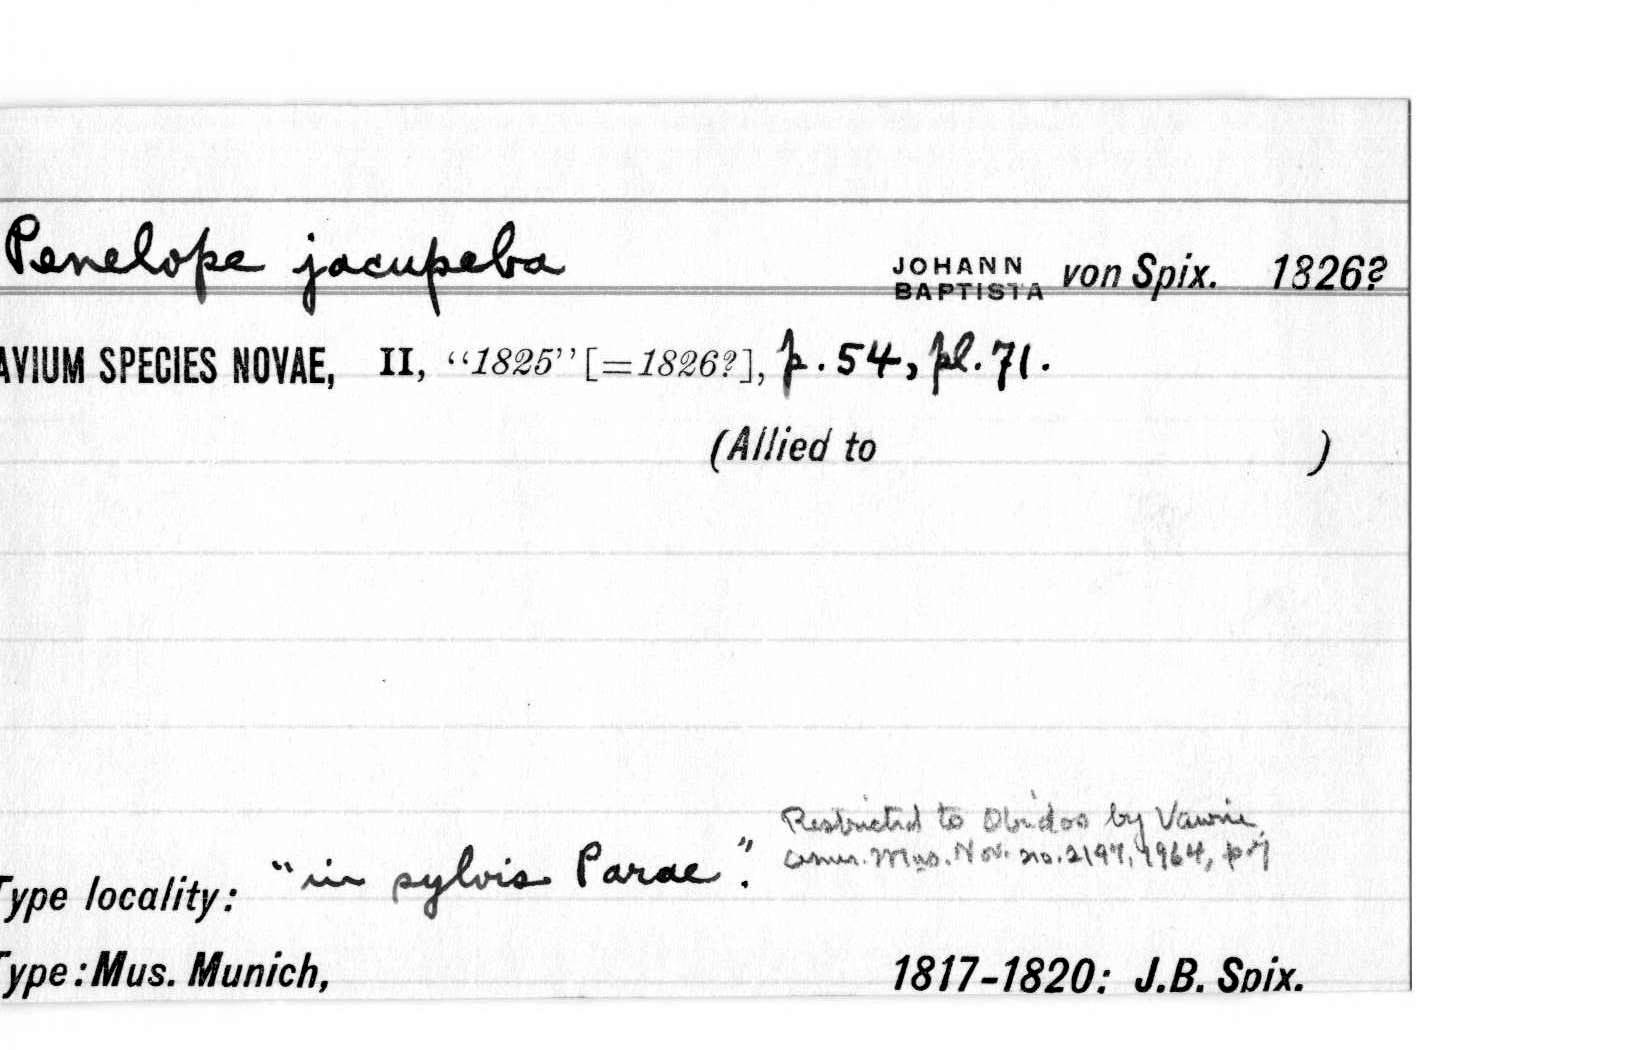 Penelope jacupeba JOHANN BAPTISTA von Spix. 1826?
AVIUM SPECIES NOVAE, II, “1825” [=1826?], p. 54, pl. 71.
(Allied to )
Restricted to Obidos by Vaurie,
Amer. Mus. Nov. no. 2197, 1964, p. 7
Type locality: “in sylvis Parae”.
Type: Mus. Munich, 1817-1820: J.B. Spix.